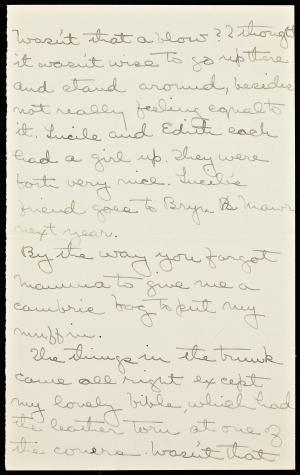 Wasn't that a blow? I thought
it wasn't wise to go up there
and stand around, besides
not really feeling equal to
it. Lucile and Edith each
had a girl up. They were
both very nice. Lucile's
friend goes to Bryn Mawr
next year.
By the way you forgot
mamma to give me a
cambric bag to put my
muff in.
The things in the trunk
came all right except
my lovely bible, which had
the leather torn at one of
the coners. Wasn't that